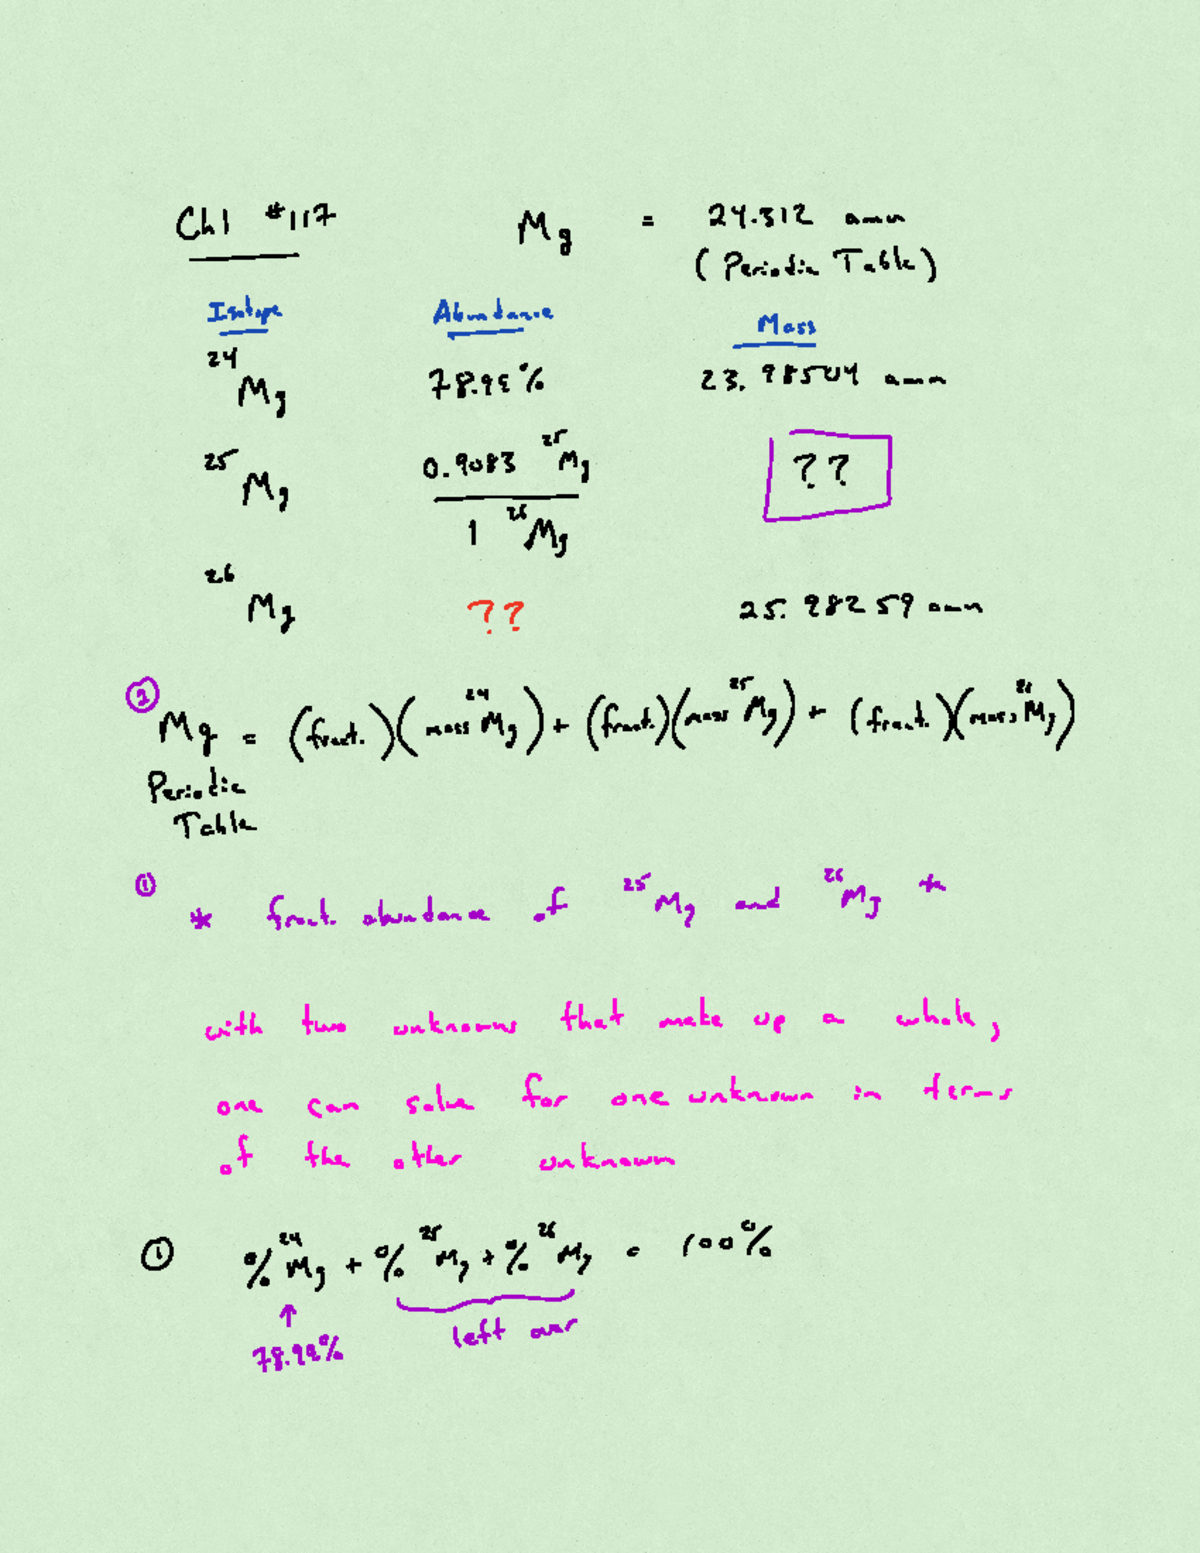 Ch1 #117 Mg = 24.312 amu
(Periodic Table)
Isotope Abundance Mass
24Mg 78.99% 23.98504 amu
25Mg 0.9083 25Mg / 1 26Mg ??
26Mg ?? 25.98259 amu
② Mg = (fract.)(mass 24Mg) + (fract.)(mass 25Mg) + (fract.)(mass 26Mg)
Periodic
Table
① * fract. abundance of 25Mg and 26Mg *
with two unknowns that make up a whole,
one can solve for one unknown in terms
of the other unknown
① % 24Mg + % 25Mg + % 26Mg = 100%
↑ left over
78.99%